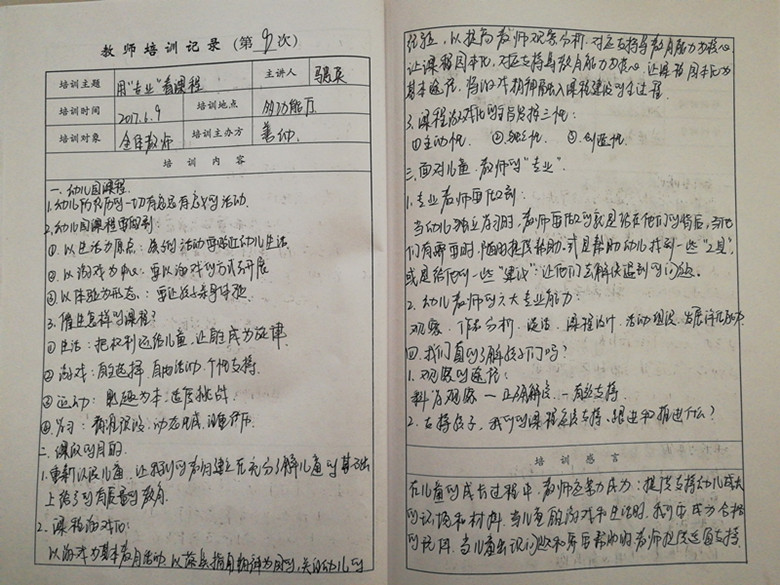 教师培训记录（第9次）
培训主题 用“专业”看课程 主讲人
培训时间 2017.6.9 培训地点 多功能厅
培训对象 全体教师 培训主办方
培训内容
一、幼儿园课程
1.幼儿所经历的一切有意思有意义的活动.
2.幼儿园课程要做到:
①.以生活为原点: 活动要贴近幼儿生活
②.以游戏为中心: 要以游戏的方式去开展
③以体验为形态: 要让孩子亲身体验.
3.催生怎样的课程?
①生活: 把权利还给儿童,让自主成为旋律.
② 游戏: 自主选择.自由活动.个性支持.
③ 运动: 兴趣为本.适度挑战.
④.学习: 有准预设.动态生成.
二、课改的目的.
1.重新认识儿童.让我们的教育建立在充分了解儿童的基础
上给予的有质量的教育.
2. 课程游戏化:
以游戏为基本教育活动.以 指南精神为 ,关注幼儿的
经验,以提高教师观察分析.对应支持等教育能力为核心.
让课程园本化,对应支持等教育能力为核心.让课程园本化为
基本途径.将游戏精神融入课程建设的全过程.
3.课程游戏化的 三性:
①主动性. ② ③.创造性.
三.面对儿童.教师的“专业”.
1.专业教师要做到:
当幼儿独立存在时,教师要做的就是站在他们的背后,当他
们有需要时,随时提供帮助.或是帮助幼儿找到一些“工具”,
或是给他们一些“建议”:让他们去解决遇到的问题.
2.幼儿教师的六大专业能力:
观察.作品分析.谈话.课程设计.活动组织.发展评价
四.我们真的了解孩子们吗?
1.观察的途径:
科学观察 — 正确解读 — 有效支持
2.支持孩子,我们的课程应该支持.跟进和推进什么?
培训感言
在儿童的成长过程中.教师应努力成为:提供支持幼儿成长
的环境和材料.当儿童能游戏和生活时,我们要成为合格
的玩伴.当儿童出现问题和需要帮助时教师提供适宜支持.